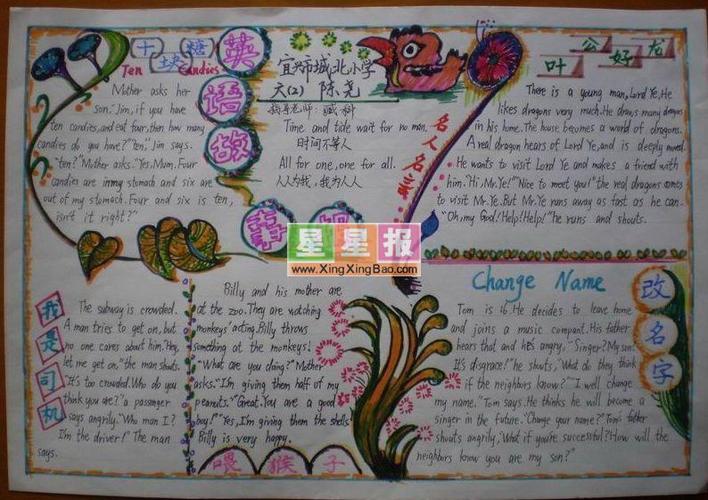 十块糖
Ten Candies
Mother asks her
son, "Jim, if you have
ten candies, and eat four, then how many
candies do you have?" "ten," Jim says.
"ten?" Mother asks. "Yes, Mum. Four
candies are in my stomach and six are
out of my stomach. Four and six is ten,
isn't it right?"
英语故事
宜兴市城北小学
六(2) 陈尧
指导老师:
Time and tide wait for no man.
时间不等人
All for one, one for all.
人人为我,我为人人
名人名言
叶公好龙
There is a young man, Lord Ye. He
likes dragons very much. He draws many dragons
in his home. The house becomes a world of dragons.
A real dragon hears of Lord Ye, and is deeply moved.
He wants to visit Lord Ye and makes a friend with
him. "Hi, Mr. Ye!" "Nice to meet you!" the real dragons comes
to visit Mr. Ye. But Mr. Ye runs away as fast as he can.
"Oh, my God! Help! Help!" he runs and shouts.
星星报
www.XingXingBao.com
我是司机
The subway is crowded.
A man tries to get on, but
no one cares about him. "Hey,
let me get on," the man shouts.
"It's too crowded. Who do you
think you are?" a passenger
says angrily. "Who am I?
I'm the driver!" The man
says.
Billy and his mother are
at the zoo. They are watching
monkeys' acting. Billy throws
something at the monkeys!
"What are you doing?" Mother
asks. "I'm giving them half of my
peanuts." "Great. You are a good
boy!" "Yes, I'm giving them the shells
Billy is very happy.
喂猴子
Change Name
改名字
Tom is 16. He decides to leave home
and joins a music company. His father
hears that and he's angry, "Singer? My son?
It's disgrace!" he shouts, "What do they think
if the neighbors know?" "I will change
my name," Tom says. He thinks he will become a
singer in the future. "Change your name?" Tom's father
shouts angrily, "What if you're successful? How will the
neighbors know you are my son?"